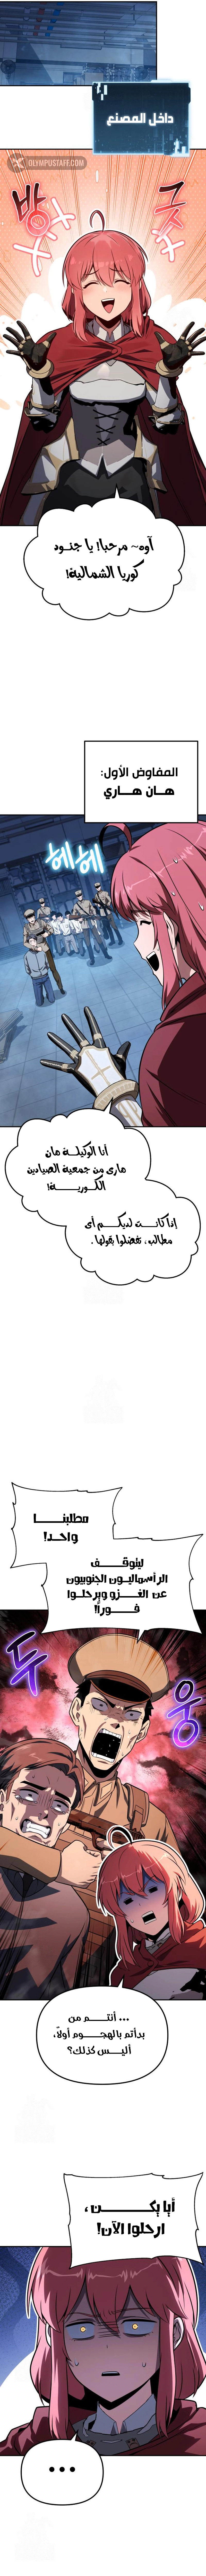 داخل المصنع
OLYMPUSTAFF.COM
방
긋
آوه~ مرحبا! يا جنود
كوريا الشمالية!
المفاوض الأول:
هان هاري
헤헤
أنا الوكيلة هان
هاري من جمعية الصيادين
الكورية!
إذا كانت لديكم أي
مطالب، تفضلوا بقولها.
مطلبنا
واحد!
ليتوقف
الرأسماليون الجنوبيون
عن الغزو ويرحلوا
فورا!!
두
웅
... أنتم من
بدأتم بالهجوم أولاً،
أليس كذلك؟
أيا يكن،
ارحلوا الآن!
...